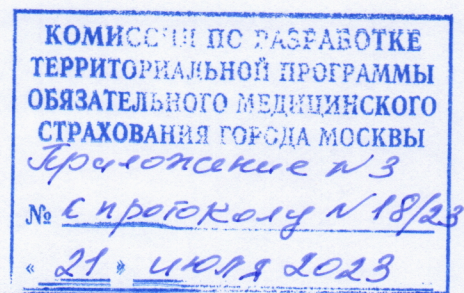 КОМИССИИ ПО РАЗРАБОТКЕ
ТЕРРИТОРИАЛЬНОЙ ПРОГРАММЫ
ОБЯЗАТЕЛЬНОГО МЕДИЦИНСКОГО
СТРАХОВАНИЯ ГОРОДА МОСКВЫ
Приложение N 3
№ к протоколу N 18/23
« 21 » июля 2023